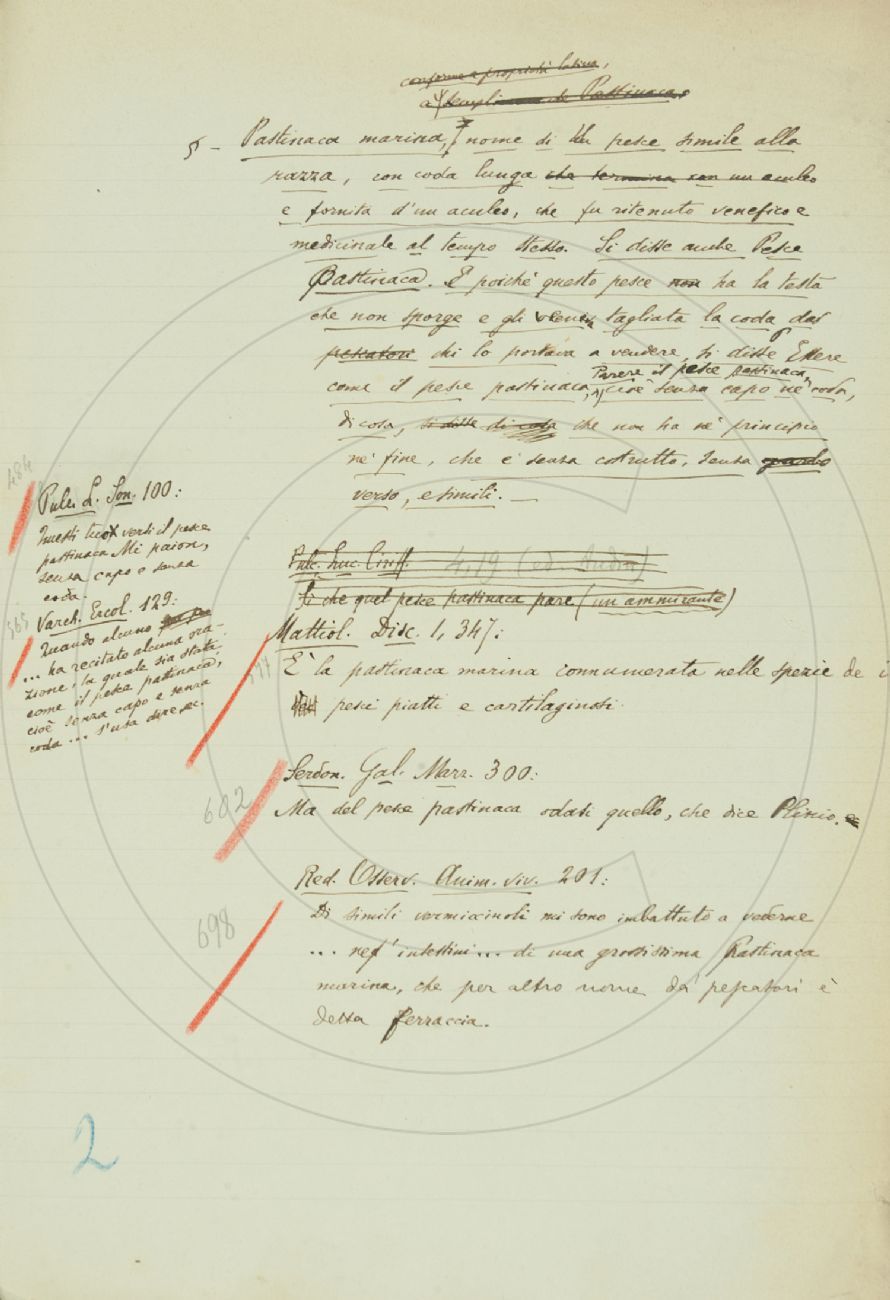 conforme a proprietà latina,
Pastinaca,
5 – Pastinaca marina, nome di un pesce simile alla
razza, con coda lunga che termina con un aculeo
e fornita d'un aculeo, che fu ritenuto venefico e
medicinale al tempo stesso. Si disse anche Pesce
Pastinaca. E poichè questo pesce non ha la testa
che non sporge e gli viene tagliata la coda da
pescatori chi lo portava a vendere, si disse Essere
Parere il pesce pastinaca,
come il pesce pastinaca, cioè senza capo nè coda,
di cosa, si disse di cosa che non ha nè principio
nè fine, che è senza costrutto, senza garbo
verso, e simili. —
484
Pule. L. Son. 100:
Questi tuoi versi il pesce
pastinaca Mi paion,
senza capo e senza
coda.
565
Varch. Ercol. 129:
Quando alcuno
... ha recitato alcuna ora-
zione, la quale sia stata
come il pesce pastinaca,
cioè senza capo e senza
coda ... s'usa dire ec.
Pulc. Luc. Ciriff. 4,19 (ed. Audin)
Sì che quel pesce pastinaca pare (un ammirante)
Mattiol. Disc. 1, 347:
È la pastinaca marina connumerata nelle spezie de i
pesci piatti e cartilaginosi.
602
Serdon. Gal. Marz. 300:
Ma del pesce pastinaca odasi quello, che dice Plinio.
698
Red. Osserv. Anim. viv. 201:
Di simili vermicciuoli mi sono imbattuto a vederne
... nef' intestini ... di una grossissima Pastinaca
marina, che per altro nome da' pescatori è
detta ferraccia.
2